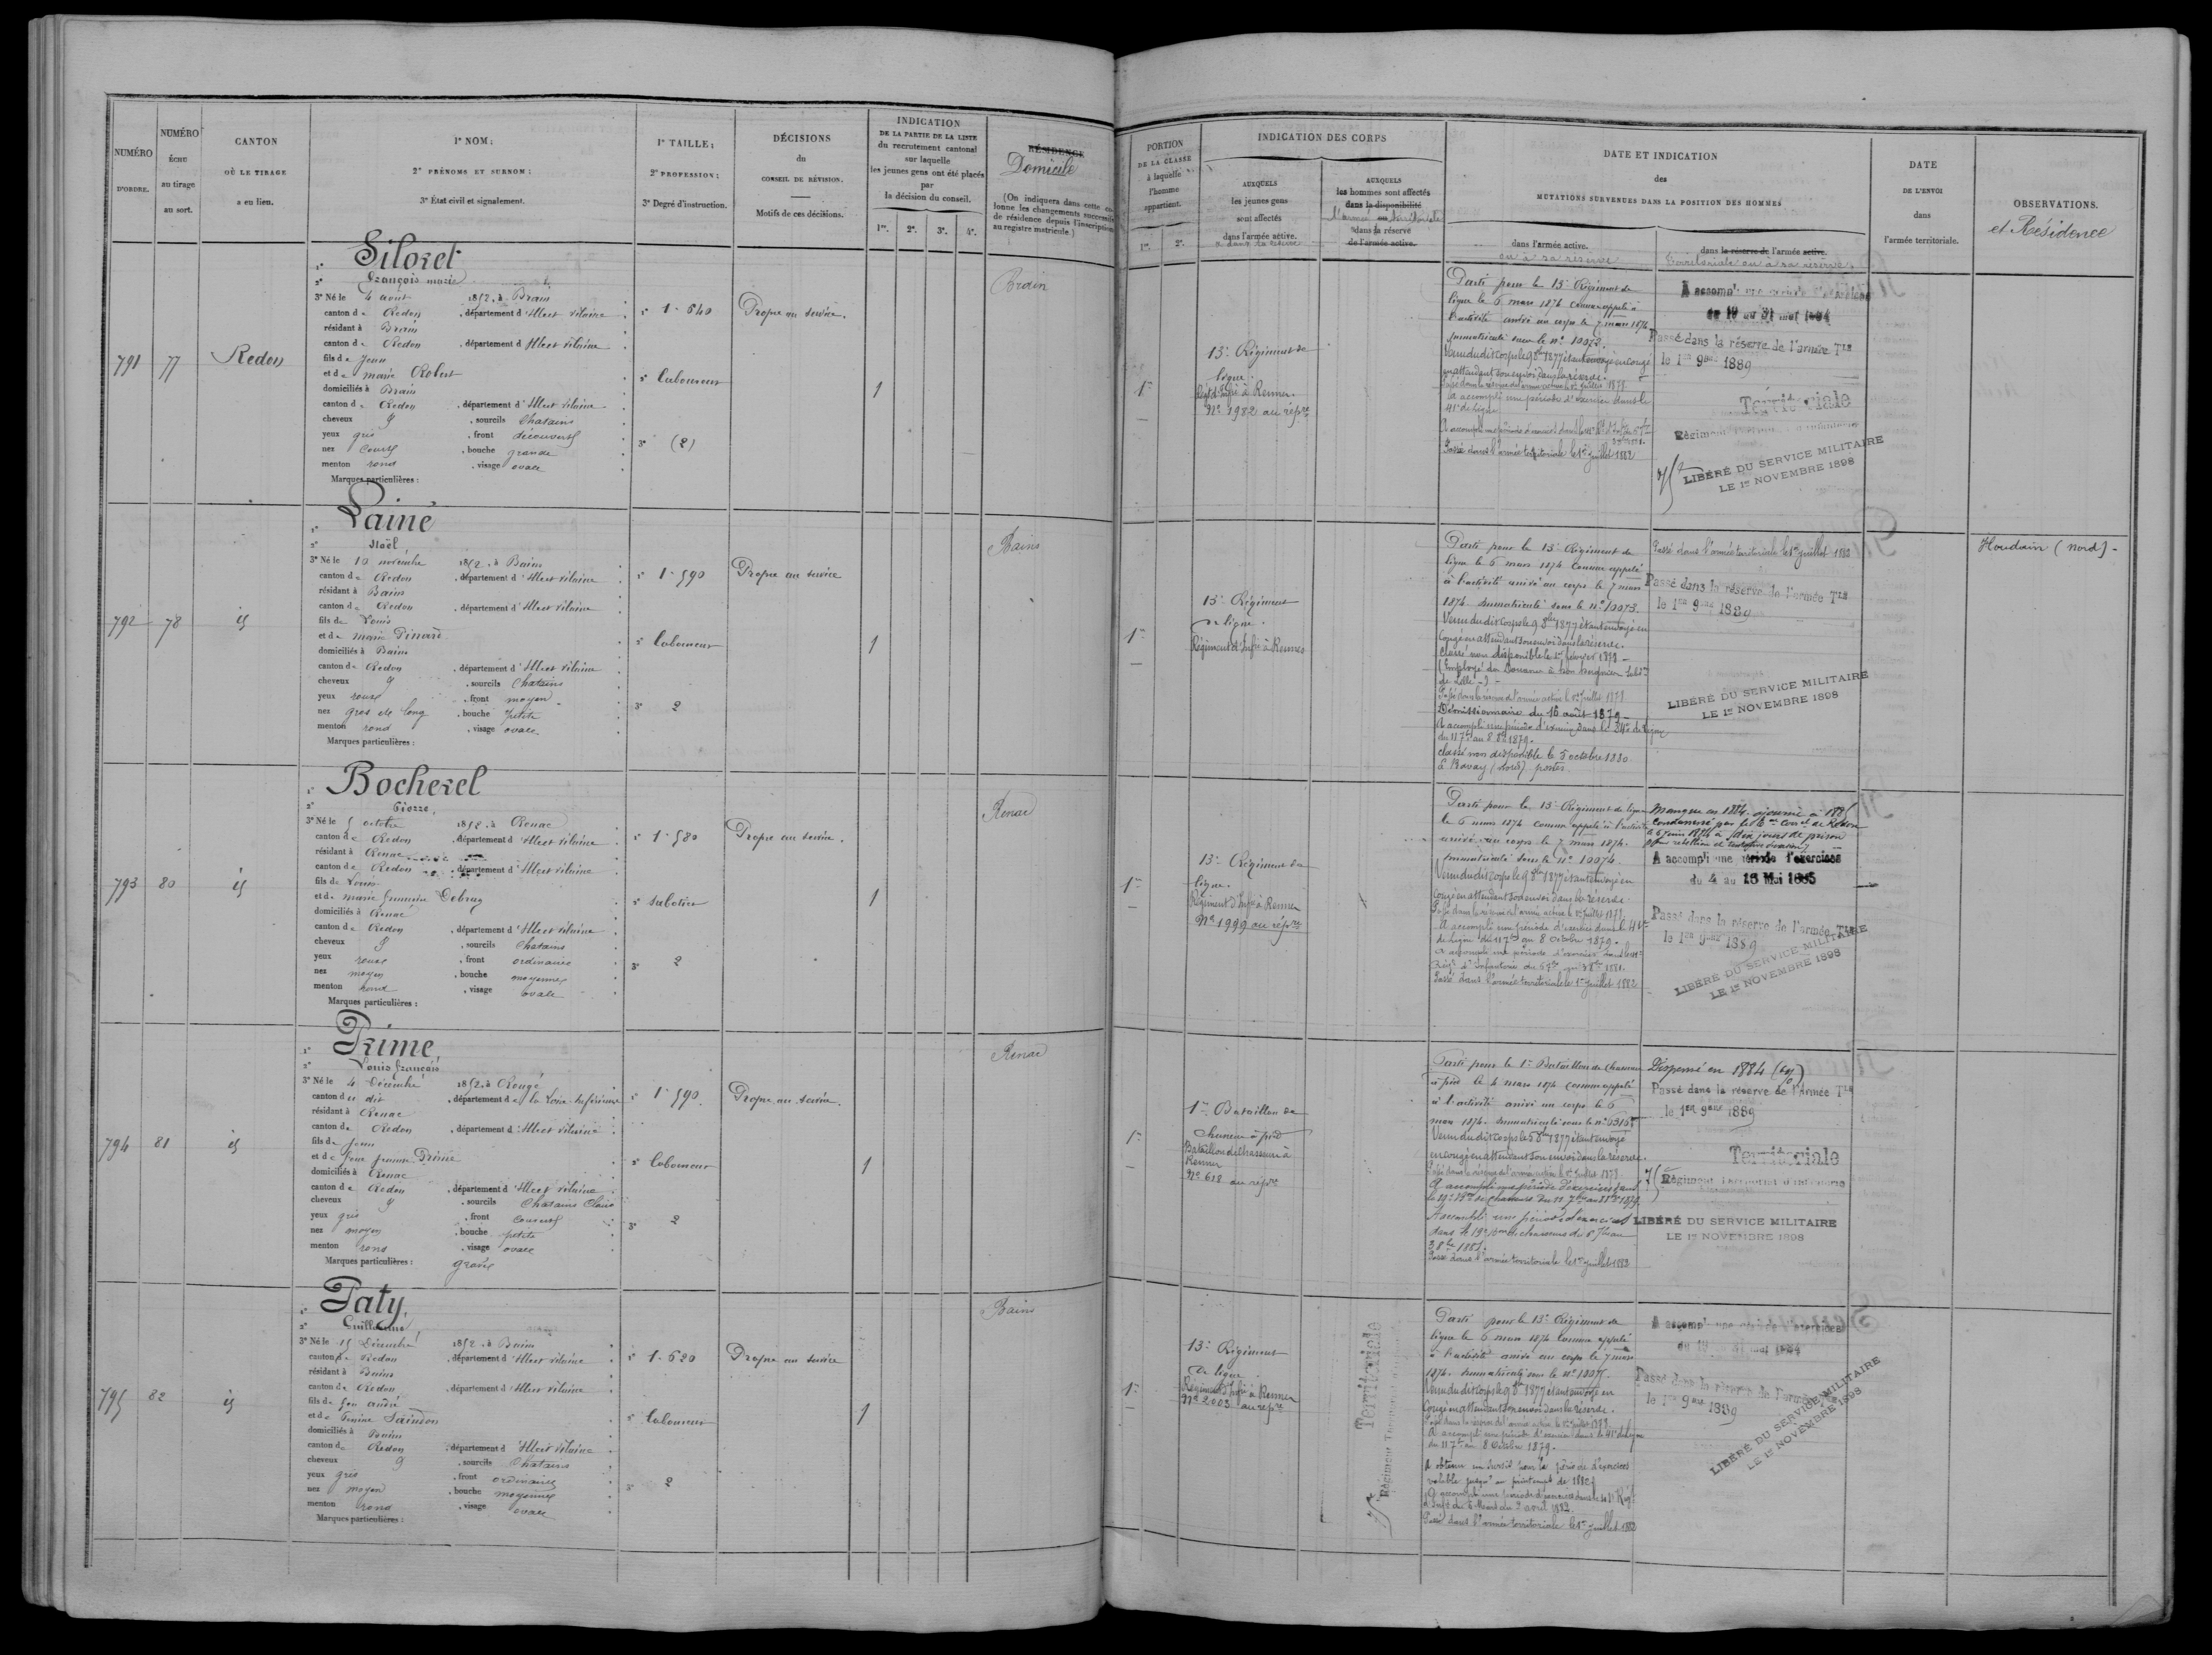 NUMÉRO
D'ORDRE.
NUMÉRO
ÉCHU
au tirage
au sort.
CANTON
OÙ LE TIRAGE
a eu lieu.
1° NOM;
2° PRÉNOMS ET SURNOM;
3° État civil et signalement.
1° TAILLE;
2° PROFESSION;
3° Degré d'instruction.
DÉCISIONS
du
CONSEIL DE RÉVISION.
Motifs de ces décisions.
INDICATION
DE LA PARTIE DE LA LISTE
du recrutement cantonal
sur laquelle
les jeunes gens ont été placés
par
la décision du conseil.
1re. 2e. 3e. 4e.
RÉSIDENCE
Domicile
(On indiquera dans cette colonne les changements successifs
de résidence depuis l'inscription
au registre matricule.)
791
77
Redon
1° Siloret
2° François marie
3° Né le 4 aout 1852, à Brain
canton de Redon, département d'Illeet vilaine
résidant à Brain
canton de Redon, département d'Illeet vilaine
fils de Jean
et de marie Robert
domiciliés à Brain
canton de Redon, département d'Illeet vilaine
cheveux, sourcils Chatains
yeux gris, front découvert
nez Court, bouche grande
menton rond, visage ovale
Marques particulières :
1° 1-640
2° laboureur
3° (2)
Propre au service.
1
Brain
792
78
id
1° Lainé
2° Noël
3° Né le 10 novembre 1852, à Bains
canton de Redon, département d'Illeet vilaine
résidant à Bains
canton de Redon, département d'Illeet vilaine
fils de Louis
et de marie Pinard
domiciliés à Bains
canton de Redon, département d'Illeet vilaine
cheveux, sourcils Chatains
yeux roux, front moyen
nez gros et long, bouche petite
menton rond, visage ovale
Marques particulières :
1° 1-590
2° Laboureur
3° 2
Propre au service
1
Bains
793
80
id
1° Bocherel
2° Pierre,
3° Né le 5 octobre 1852, à Renac
canton de Redon, département d'Illeet vilaine
résidant à Renac
canton de Redon, département d'Illeet vilaine
fils de Louis
et de marie françoise Debray
domiciliés à Renac
canton de Redon, département d'Illeet vilaine
cheveux, sourcils Chatains
yeux roux, front ordinaire
nez moyen, bouche moyenne
menton rond, visage ovale
Marques particulières :
1° 1-580
2° sabotier
3° 2
Propre au service.
1
Renac
794
81
id
1° Primé,
2° Louis françois
3° Né le 4 Décembre 1852, à Rougé
canton du dit, département de la Loire-Inférieure
résidant à Renac
canton de Redon, département d'Illeet vilaine
fils de Jean
et de Primé
domiciliés à Renac
canton de Redon, département d'Illeet vilaine
cheveux, sourcils Chatains Clairs
yeux gris, front couvert
nez moyen, bouche petite
menton rond, visage ovale
Marques particulières : gravé
1° 1-590.
2° laboureur
3° 2
Propre au service.
1
Renac
795
82
id
1° Paty,
2° Guillaume
3° Né le 15 Décembre 1852, à Bains
canton de Redon, département d'Illeet vilaine
résidant à Bains
canton de Redon, département d'Illeet vilaine
fils de feu andré
et de Saindon
domiciliés à Bains
canton de Redon, département d'Illeet vilaine
cheveux, sourcils Chatains
yeux gris, front ordinaire
nez moyen, bouche moyenne
menton rond, visage ovale
Marques particulières :
1° 1-620
2° laboureur
3° 2
Propre au service
1
Bains
PORTION
DE LA CLASSE
à laquelle
l'homme
appartient.
1re. 2e.
INDICATION DES CORPS
AUXQUELS
les jeunes gens
sont affectés
dans l'armée active.
ou dans sa réserve
AUXQUELS
les hommes sont affectés
dans la disponibilité
l'armée territoriale
dans la réserve
de l'armée active.
DATE ET INDICATION
des
MUTATIONS SURVENUES DANS LA POSITION DES HOMMES
dans l'armée active.
ou à sa réserve
dans la réserve de l'armée active.
territoriale ou à sa réserve.
DATE
DE L'ENVOI
dans
l'armée territoriale.
OBSERVATIONS.
et Résidence
1re
13e Régiment de
ligne.
Régt d'Infie à Rennes.
No 1982 au rép.re
Parti pour le 13e Régiment de
ligne le 6 mars 1874 comme appelé à
l'activité arrivé au corps le 7 mars 1874
immatriculé sous le no 10072.
Venu du dit corps le 9 8bre 1877 étant envoyé en congé
en attendant son envoi dans la réserve.
Passé dans la réserve de l'armée active le 1er Juillet 1878
a accompli une période d'exercice dans le
41e de ligne
Passé dans l'armée territoriale le 1er Juillet 1882
A accompli une période d'exercices
du 19 au 31 mai 1884
Passé dans la réserve de l'armée Tle
le 1er 9bre 1889
Territoriale
Régiment Territorial d'Infanterie
LIBÉRÉ DU SERVICE MILITAIRE
LE 1er NOVEMBRE 1898
1re
13e Régiment
de ligne.
Régiment d'Infie à Rennes
Parti pour le 13e Régiment de
ligne le 6 mars 1874 comme appelé
à l'activité arrivé au corps le 7 mars
1874 immatriculé sous le no 10073.
Venu du dit corps le 9 8bre 1877 étant envoyé en
congé en attendant son envoi dans la réserve.
Classé non disponible le 1er février 1878 -
(Employé des Douanes à
de Lille -
Passé dans la réserve de l'armée active le 1er Juillet 1878
Démissionnaire du 16 août 1879 -
A accompli une période d'exercice dans le 84e de ligne
du 11 7bre au 8 8bre 1879.
classé non disponible le 5 octobre 1880
à Bavay (Nord) postes.
Passé dans l'armée territoriale le 1er Juillet 1882
Passé dans la réserve de l'armée Tle
le 1er 9bre 1889
LIBÉRÉ DU SERVICE MILITAIRE
LE 1er NOVEMBRE 1898
Houdain (Nord) -
1re
13e Régiment de
ligne.
Régiment d'Infie à Rennes
No 1999 au rép.re
Parti pour le 13e Régiment de ligne
le 6 mars 1874 comme appelé à l'activité
arrivé au corps le 7 mars 1874.
immatriculé sous le no 10074.
Venu du dit corps le 9 8bre 1877 étant envoyé en
congé en attendant son envoi dans la réserve.
Passé dans la réserve de l'armée active le 1er Juillet 1878.
A accompli une période d'exercice dans le 41e
de ligne du 11 7bre au 8 Octobre 1879.
A accompli une période d'exercice dans le 41e
Régt d'Infanterie du 6 7bre au 3 8bre 1881.
Passé dans l'armée territoriale le 1er Juillet 1882
Manque en 1884 ajourné à 1885
Condamné par le de Redon
le 6 juin 1874 à dix jours de prison
pour rébellion
A accompli une période d'exercices
du 4 au 16 Mai 1885
Passé dans la réserve de l'armée Tle
le 1er 9bre 1889
LIBÉRÉ DU SERVICE MILITAIRE
LE 1er NOVEMBRE 1898
1re
1er Bataillon de
chasseurs à pied
Bataillon de Chasseurs à
Rennes
No 618 au rép.re
Parti pour le 1er Bataillon de chasseurs
à pied le 4 mars 1874 comme appelé
à l'activité arrivé au corps le 6
mars 1874. immatriculé sous le no
Venu du dit corps le 5 8bre 1877 étant envoyé
en congé en attendant son envoi dans la réserve.
Passé dans la réserve de l'armée active le 1er Juillet 1878
A accompli une période d'exercices dans
le 19e Bon de chasseurs du 11 7bre au 8 8bre 1879
A accompli une période d'exercices
dans le 19e Bon de chasseurs du 6 7bre au
3 8bre 1881.
Passé dans l'armée territoriale le 1er Juillet 1882
Dispensé en 1884
Passé dans la réserve de l'armée Tle
le 1er 9bre 1889
Territoriale
Régiment Territorial d'Infanterie
LIBÉRÉ DU SERVICE MILITAIRE
LE 1er NOVEMBRE 1898
1re
13e Régiment
de ligne
Régiment d'Infie à Rennes
No 2003 au rép.re
Territoriale
Régiment Territorial
Parti pour le 13e Régiment de
ligne le 6 mars 1874 comme appelé
à l'activité arrivé au corps le 7 mars
1874. immatriculé sous le no 10075.
Venu du dit corps le 9 8bre 1877 étant envoyé en
congé en attendant son envoi dans la réserve.
Passé dans la réserve de l'armée active le 1er Juillet 1878
A accompli une période d'exercice dans le 41e de ligne
du 11 7bre au 8 Octobre 1879.
A obtenu un sursis pour la période d'exercices
valable jusqu'au printemps de 1882
A accompli une période d'exercices dans le 41e Régt
d'Inf. du 6 Mars au 2 avril 1882.
Passé dans l'armée territoriale le 1er Juillet 1882
A accompli une période d'exercices
du 19 au 31 mai 1884
Passé dans la réserve de l'armée Tle
le 1er 9bre 1889
LIBÉRÉ DU SERVICE MILITAIRE
LE 1er NOVEMBRE 1898